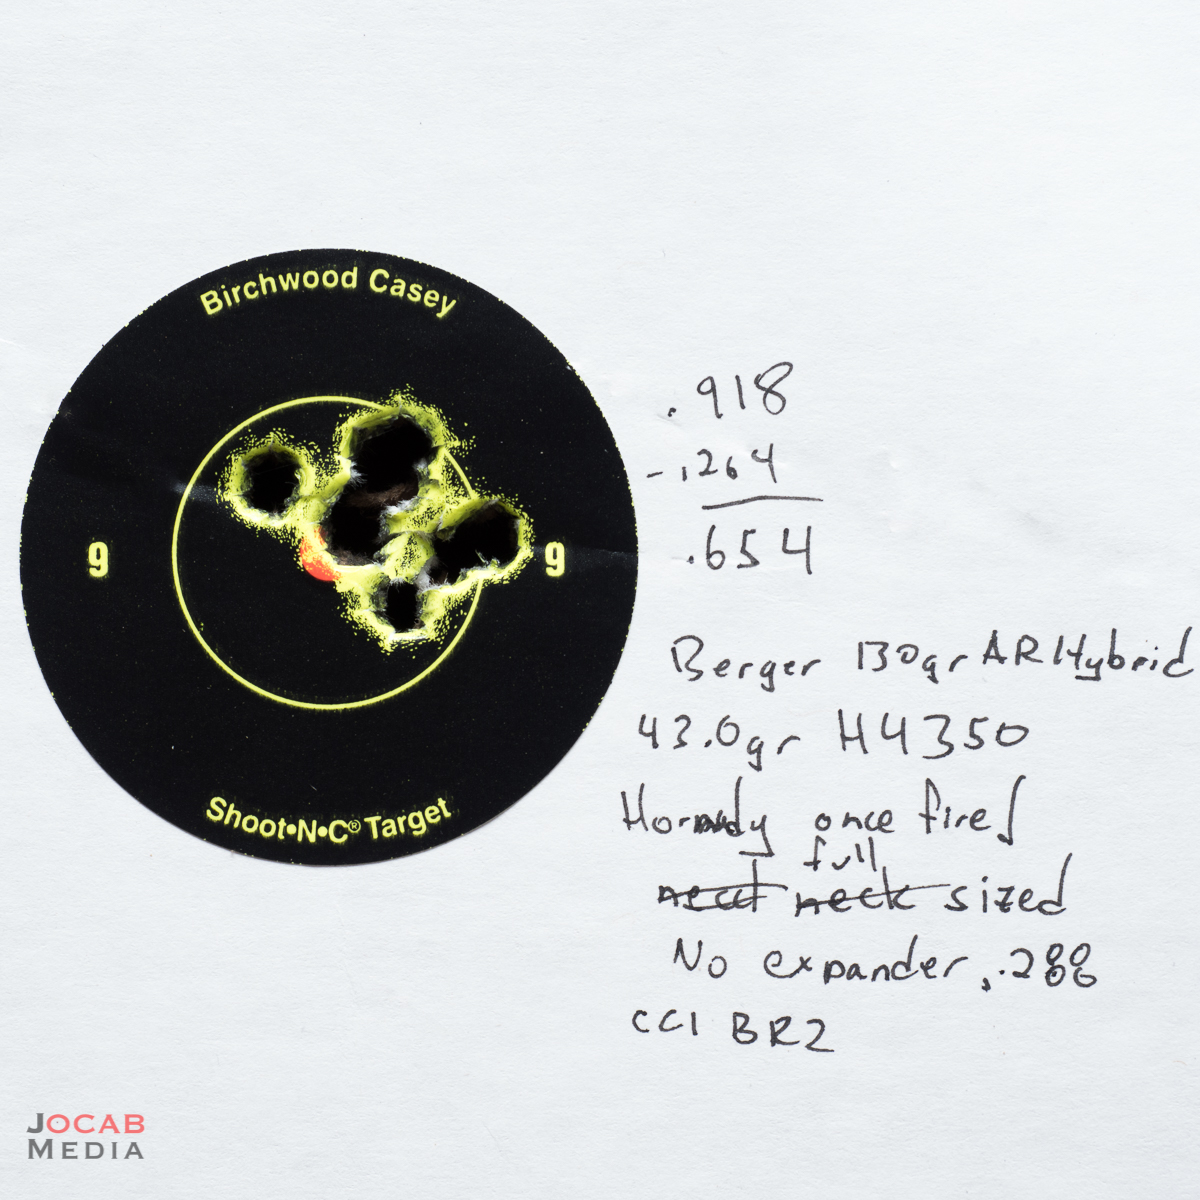 Birchwood Casey
9 9
Shoot•N•C® Target
.918
- .264
.654
Berger 130gr AR Hybrid
43.0gr H4350
Hornady once fired
full
neck sized
No expander, .288
CCI BR2
JOCAB
MEDIA